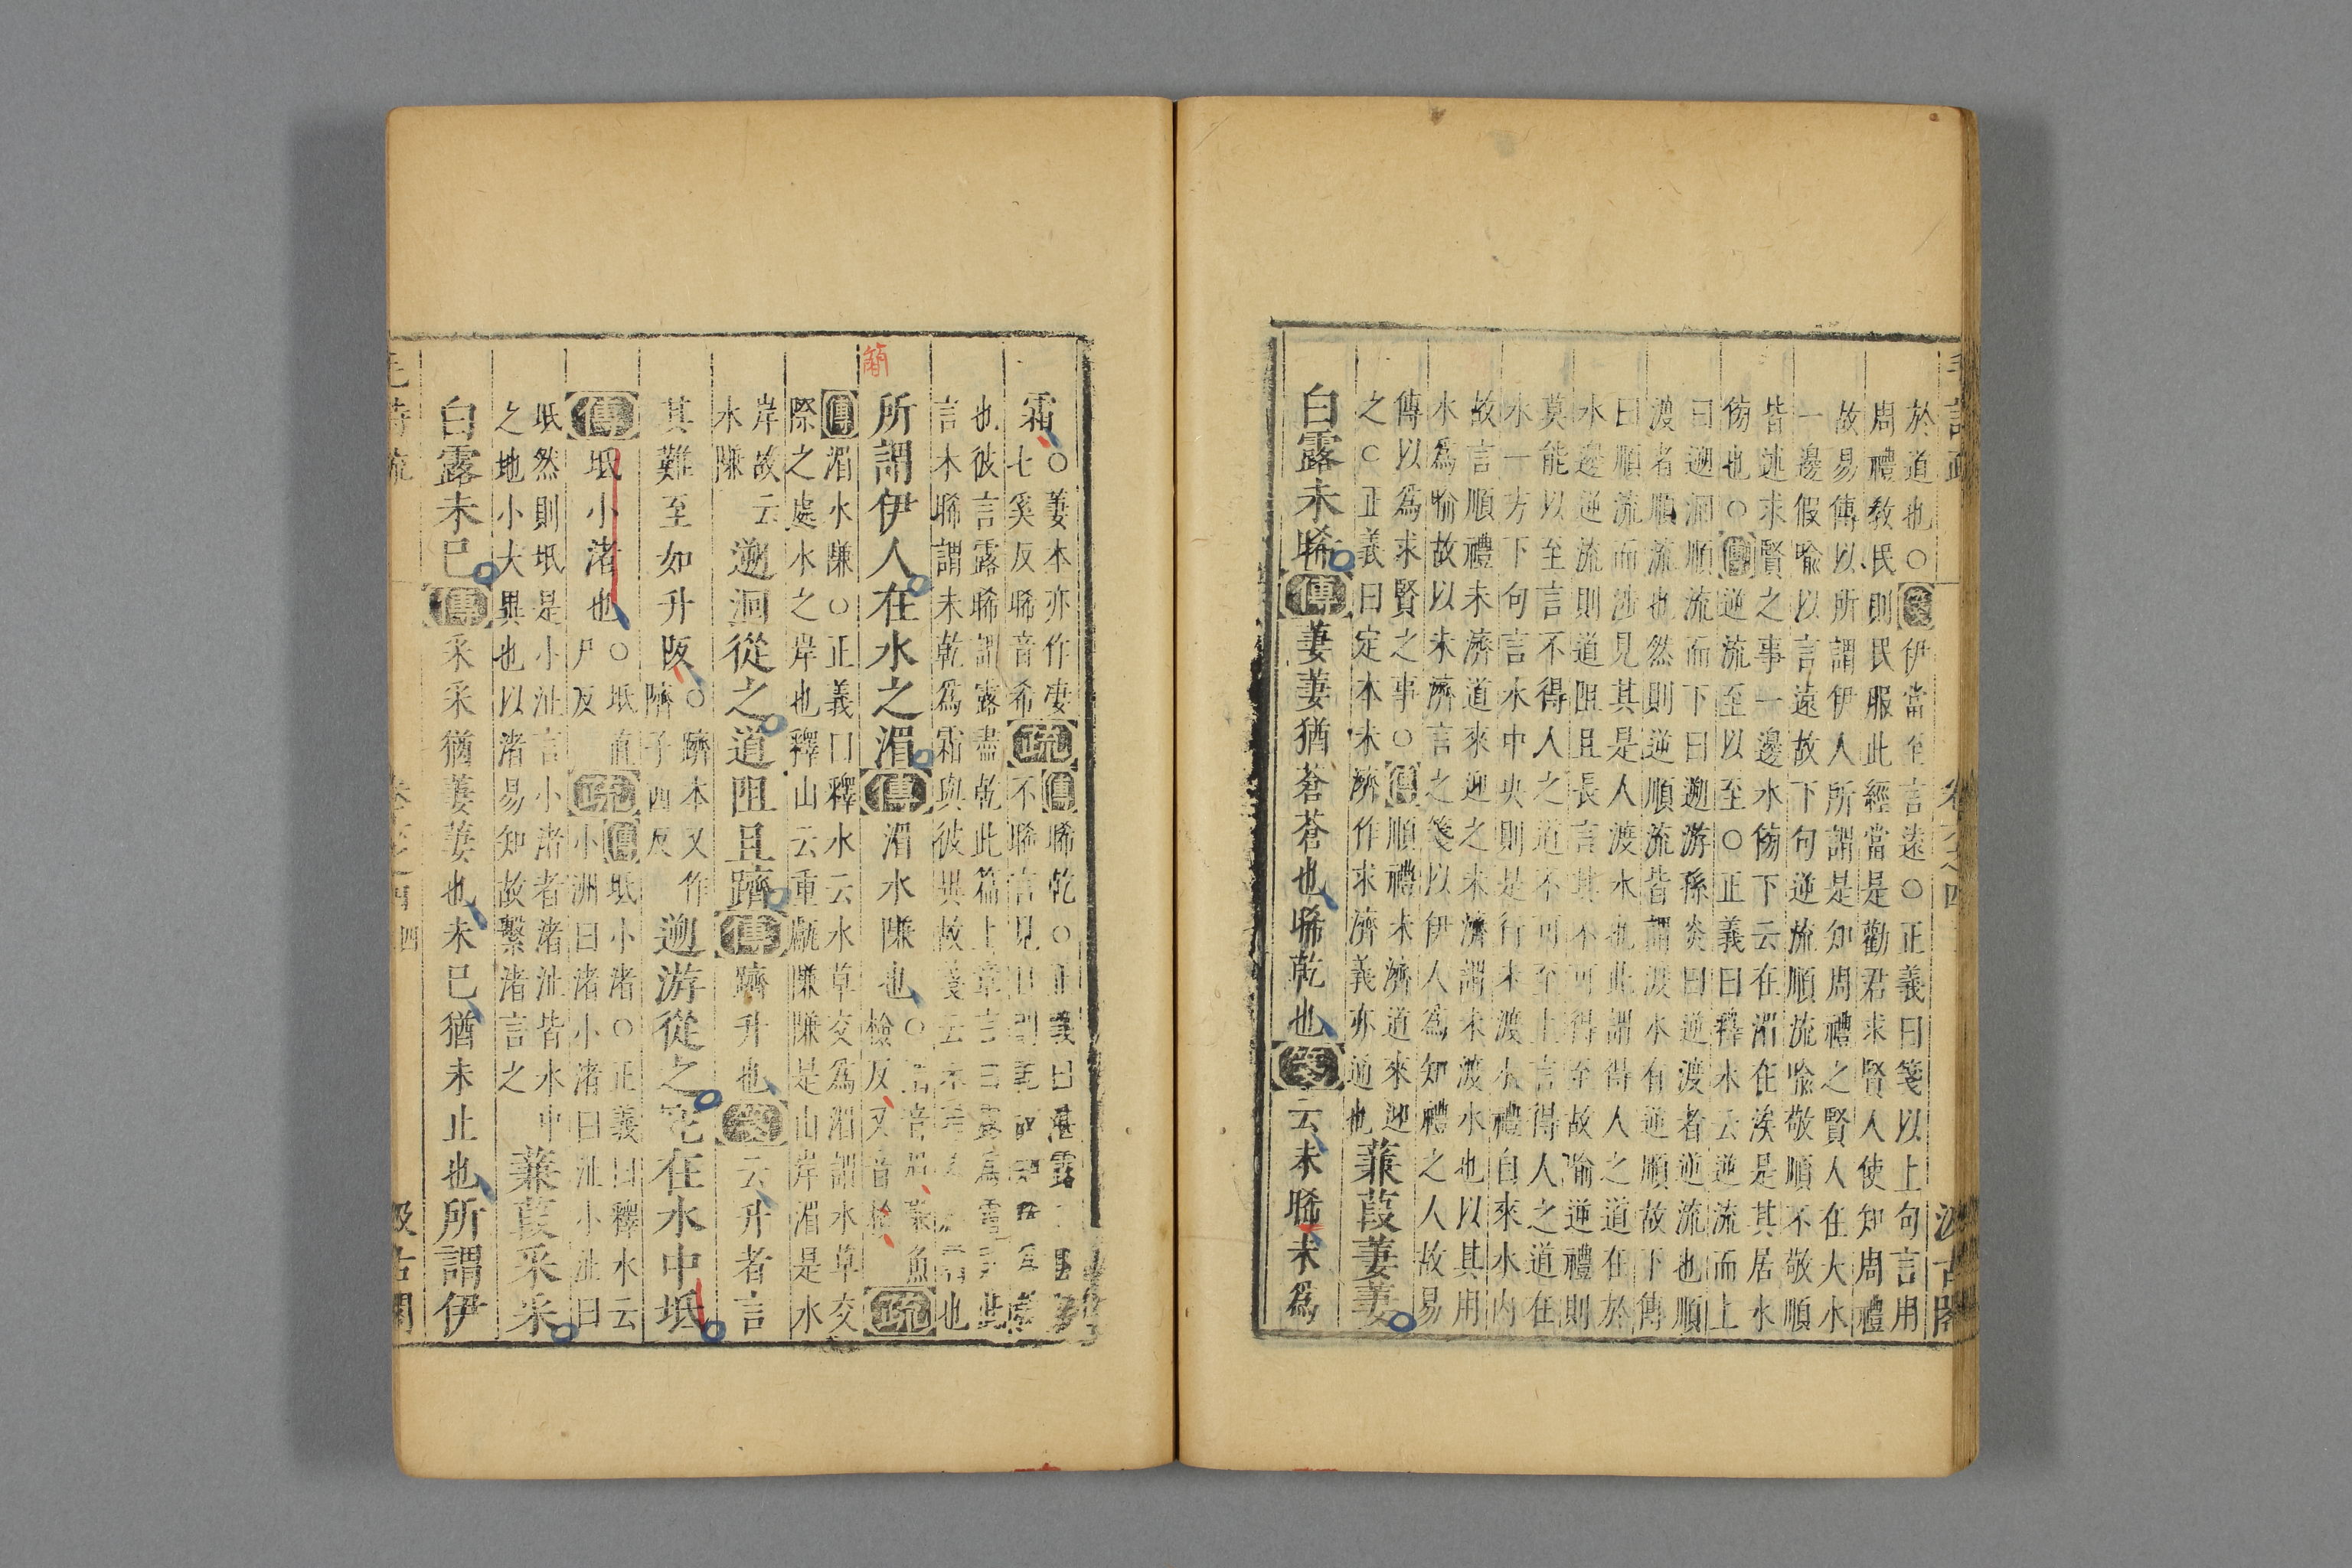 於道也○箋伊當至言遠○正義曰箋以上句言用
周禮教民則民服此經當是勸君求賢人使知周禮
故易傳以所謂伊人所謂是知周禮之賢人在大水
一邊假喻以言遠故下句逆流順流喻敬順不敬順
皆述求賢之事一邊水傍下云在湄在涘是其居水
傍也○傳逆流至以至○正義曰釋水云逆流而上
曰遡洄順流而下曰遡游孫炎曰逆渡者逆流也順
渡者順流也然則逆順流皆謂渡水有逆順故下傳
曰順流而涉見其是人渡水也此謂得人之道在於
水邊逆流則道阻且長言其不可得至故喻逆禮則
莫能以至言不得人之道不可至上言得人之道在
水一方下句言水中央則是行未渡水禮自來水内
故言順禮未濟道來迎之未濟謂未渡水也以其用
水為喻故以未濟言之箋以伊人為知禮之人故易
傳以為求賢之事○傳順禮未濟道來迎
之○正義曰定本未濟作求濟義亦通也蒹葭萋萋
白露未晞傳萋萋猶蒼蒼也晞乾也箋云未晞未為
霜○萋本亦作凄
七奚反晞音希疏傳晞乾○正義曰湛露
不晞言見日
也彼言露晞謂露盡乾此篇上章言白露為霜
言未晞謂未乾為霜與彼異故箋云未
所謂伊人在水之湄傳湄水隒也○
檢反又音 疏
傳湄水隒○正義曰釋水云水草交為湄謂水草交
際之處水之岸也釋山云重甗隒隒是山岸湄是水
岸故云
水隒遡洄從之道阻且躋傳躋升也箋云升者言
其難至如升阪○躋本又作
隮子西反遡游從之宛在水中坻
傳坻小渚也○坻直
尸反疏傳坻小渚○正義曰釋水云
小洲曰渚小渚曰沚小沚曰
坻然則坻是小沚言小渚者渚沚皆水中
之地小大異也以渚易知故繫渚言之蒹葭采采
白露未已傳采采猶萋萋也未已猶未止也所謂伊